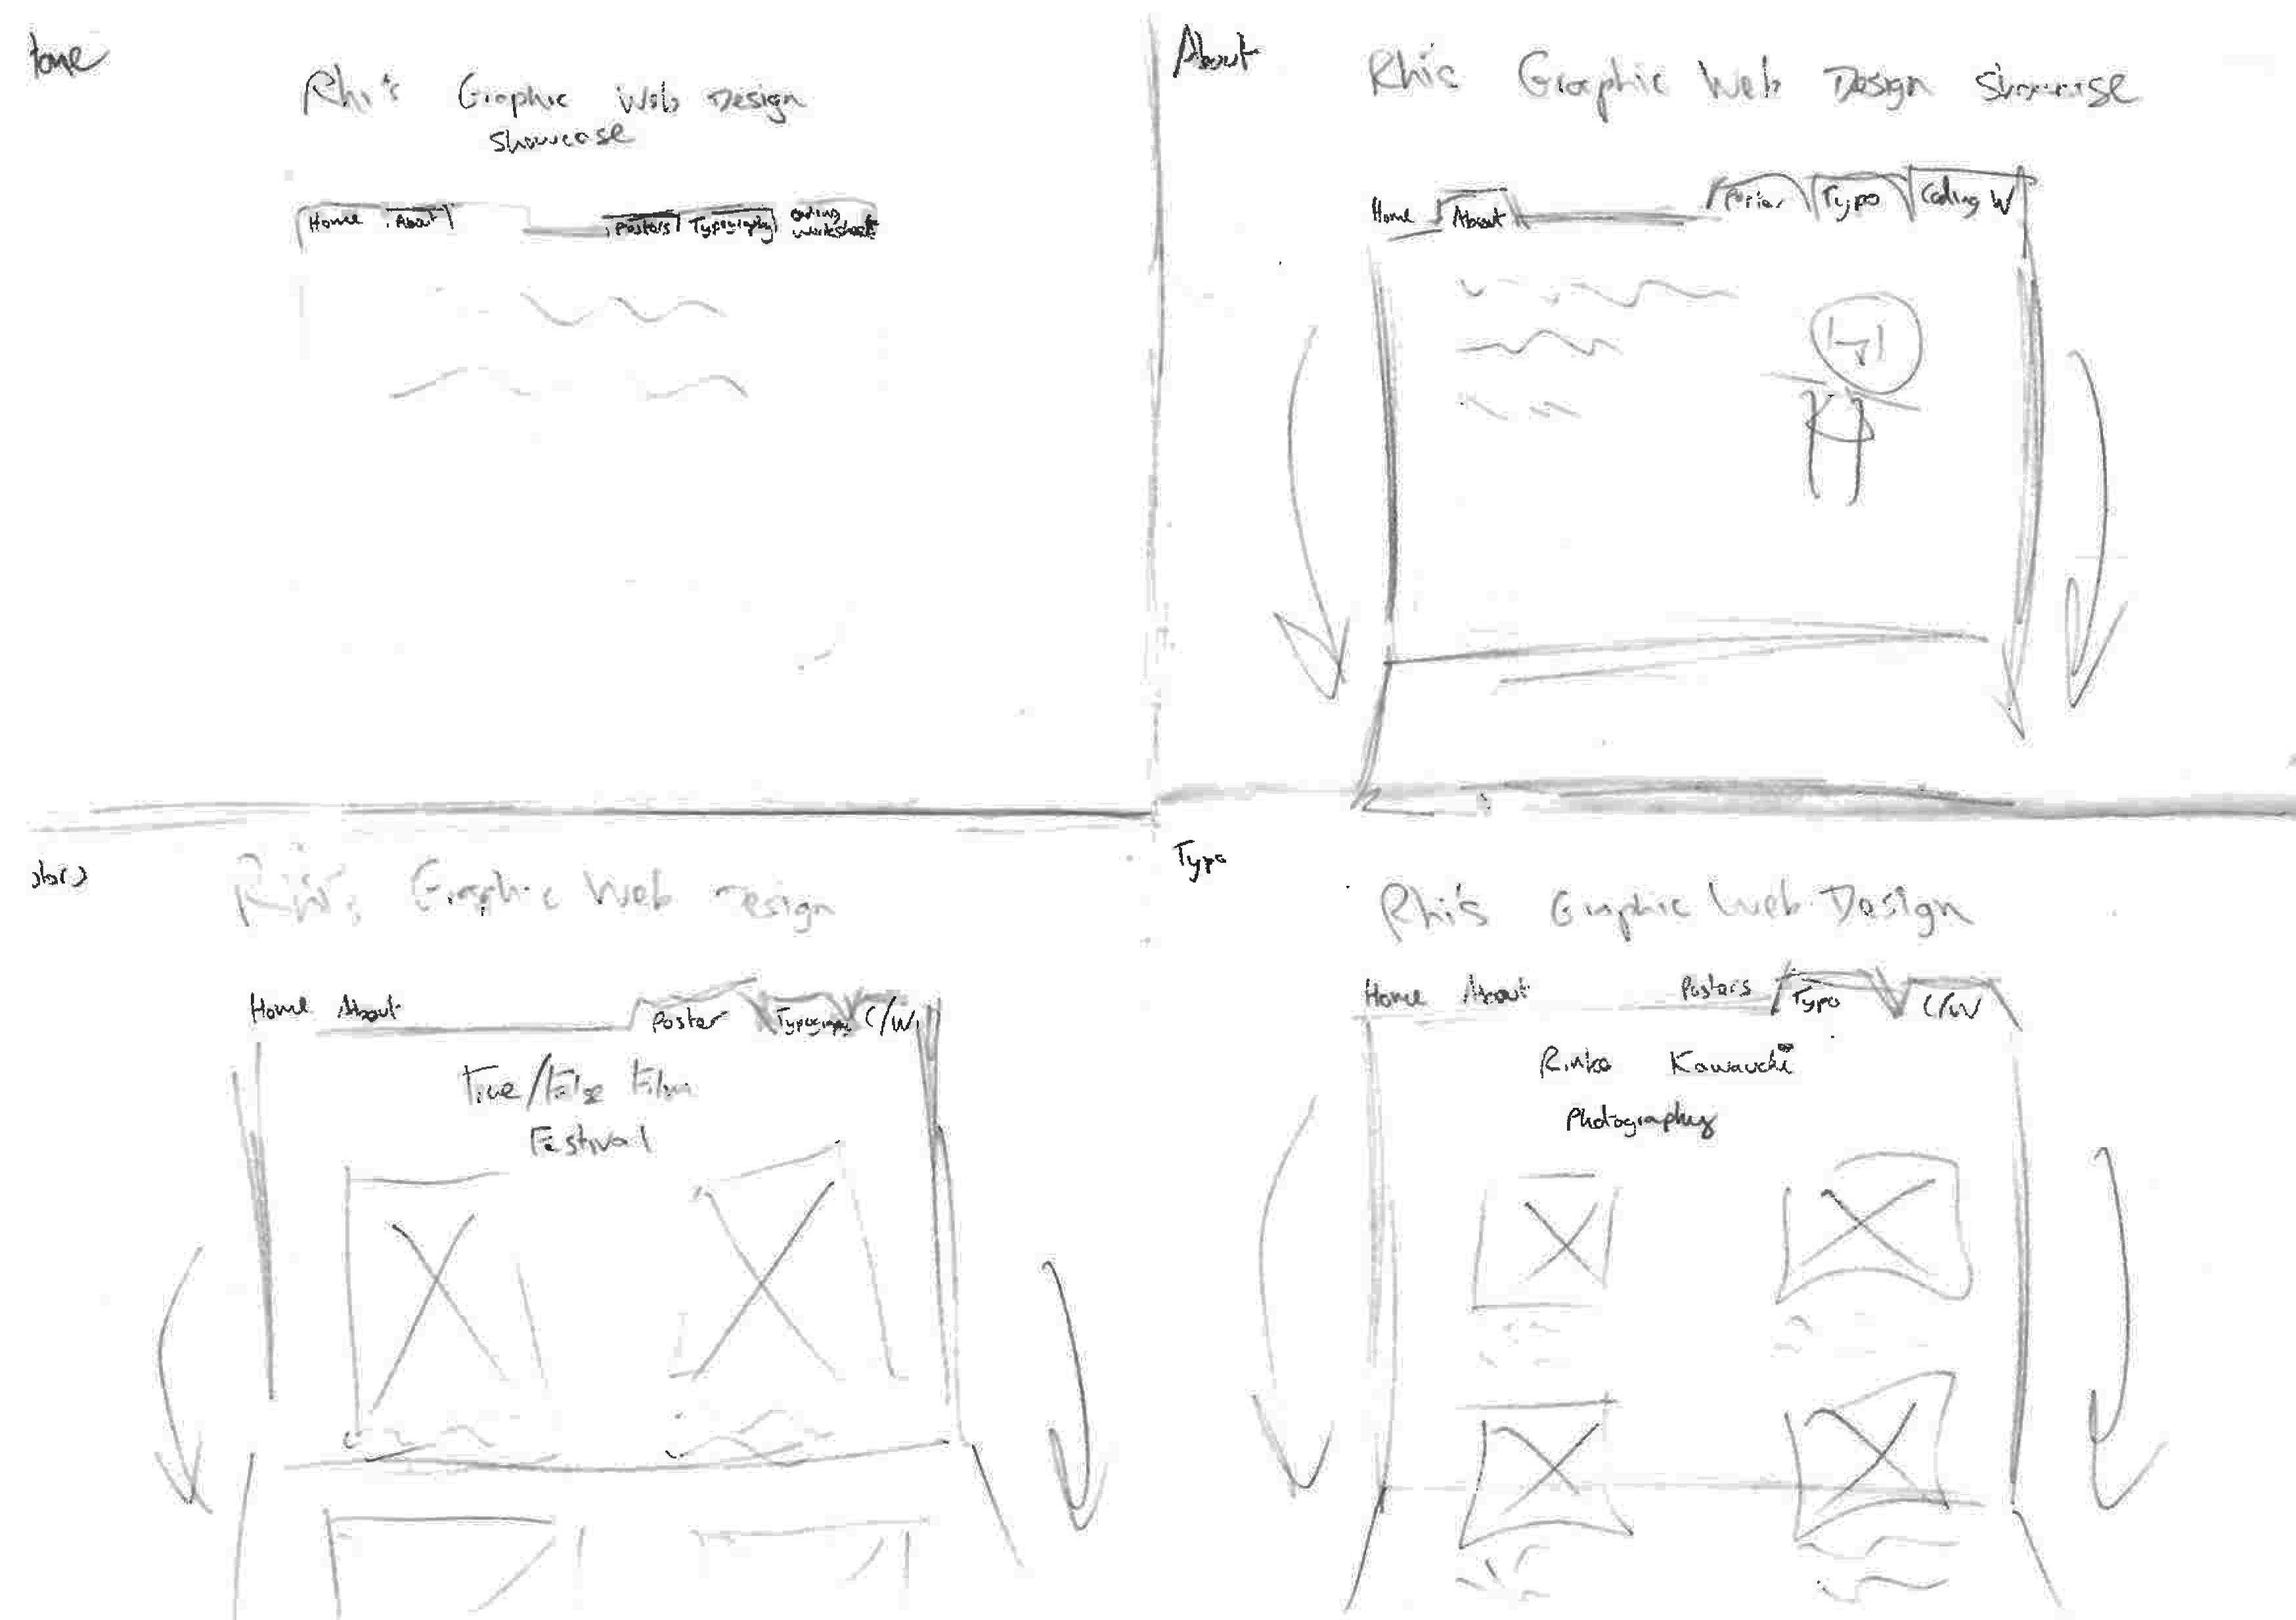 Home
Rhi's Graphic Web Design
Showcase
Home About Posters Typography Coding
Worksheets
About
Rhi's Graphic Web Design Showcase
Home About Poster Typo Coding W
Rhi's Graphic Web Design
Home About Poster Typography C/W
True/False Film
Festival
Typo
Rhi's Graphic Web Design
Home About Posters Typo C/W
Rinko Kawauchi
Photography